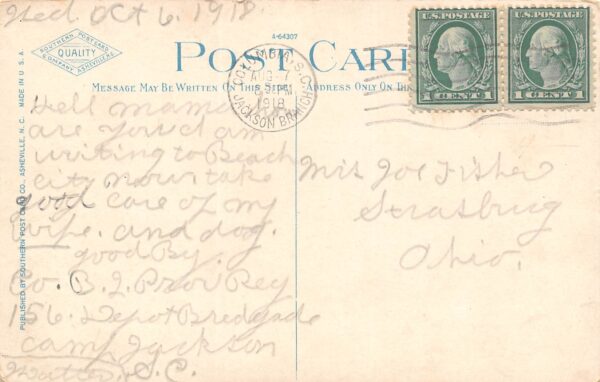 died Oct 6, 1918.
A-64307
SOUTHERN POST CARD
QUALITY
COMPANY ASHEVILLE
MADE IN U.S.A.
PUBLISHED BY SOUTHERN POST CARD CO., ASHEVILLE, N. C.
POST CARD
MESSAGE MAY BE WRITTEN ON THIS SIDE
ADDRESS ONLY ON THIS
COLUMBIA, S.C.
AUG 7
1918
JACKSON BRANCH
U.S. POSTAGE
1 CENT 1
U.S. POSTAGE
1 CENT 1
Hell mama
are you I am
writing to Beach
city now take
good care of my
wife. and dog.
good By.
Co. B. 2 Prov Reg
156. Depot Bredgade
Camp Jackson
S.C.
Mrs Joe Fisher
Strasburg
Ohio.